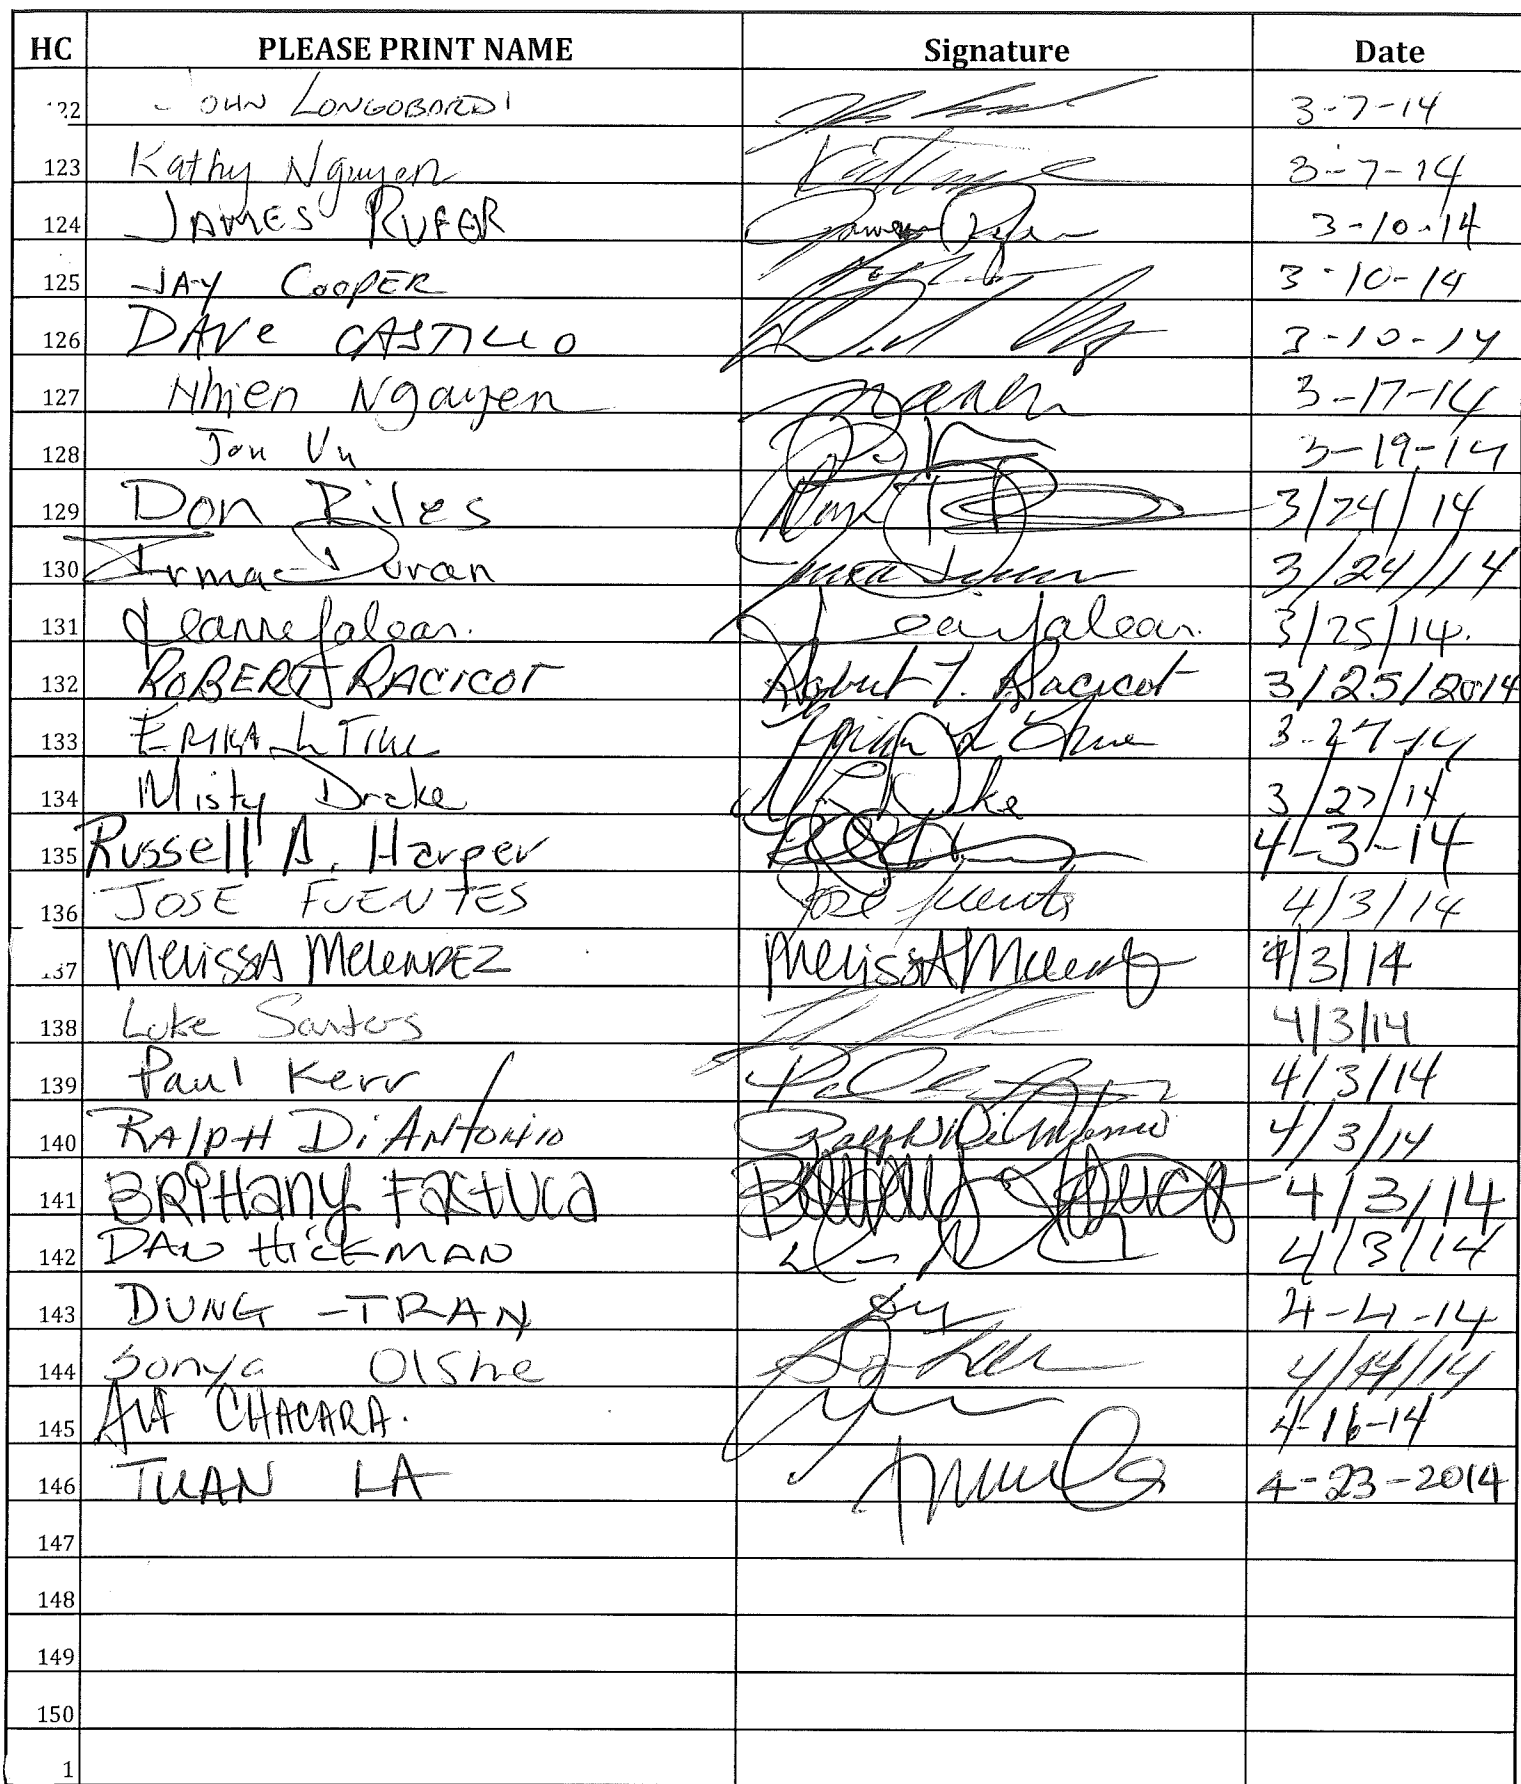 HC PLEASE PRINT NAME Signature Date
22 JOHN LONGOBARDI 3-7-14
123 Kathy Nguyen 3-7-14
124 JAMES RUFER James Rufer 3-10-14
125 JAY COOPER 3-10-14
126 DAVE CASTILLO 3-10-14
127 Nhien Ngauyen 3-17-14
128 Jon Vu 3-19-14
129 Don Biles 3/24/14
130 Irma Duran Irma Duran 3/24/14
131 3/25/14.
132 ROBERT RACICOT Robert T. Racicot 3/25/2014
133 ERIKA L 3-27-14
134 Misty Drake 3/27/14
135 Russell A. Harper 4-3-14
136 JOSE FUENTES Jose Fuentes 4/3/14
137 MelissA MelenDEZ MelissA 4/3/14
138 Luke Santos 4/3/14
139 Paul Kerr 4/3/14
140 RAlPH Di ANTONIO Ralph Di Antonio 4/3/14
141 BRittany Fastuca Fastuca 4/3/14
142 DAN HiCKMAN 4/3/14
143 DUNG -TRAN 4-4-14
144 Sonya 4/14/14
145 CHACARA. 4-16-14
146 TUAN LA 4-23-2014
147
148
149
150
1